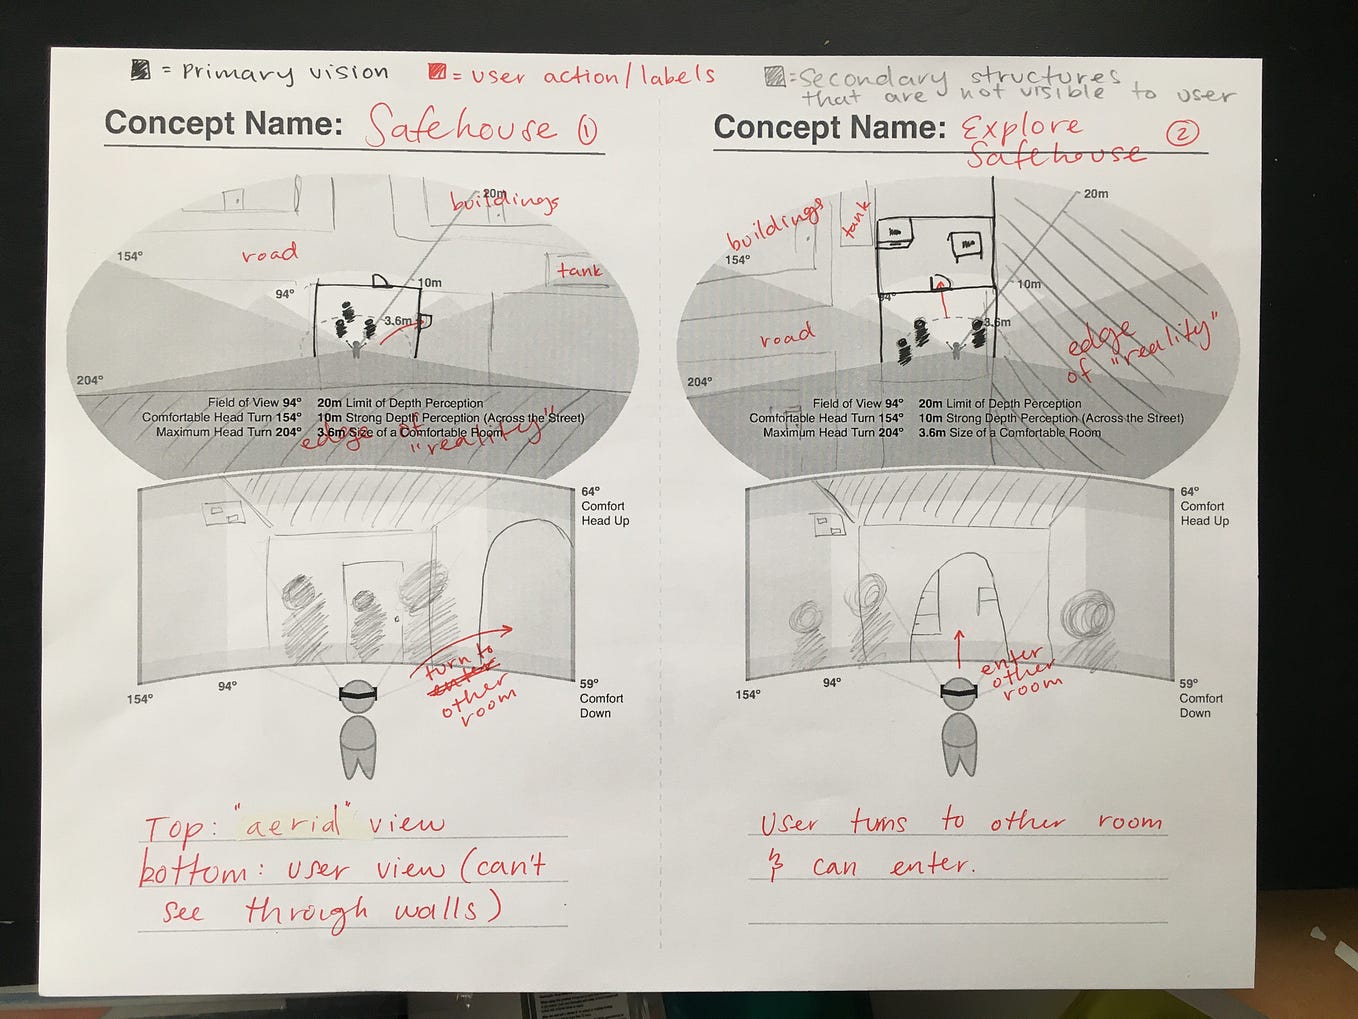 = Primary vision
= user action/labels
= Secondary structures
that are not visible to user
Concept Name: Safehouse ①
buildings
20m
road
154°
tank
10m
94°
3.6m
204°
Field of View 94° 20m Limit of Depth Perception
Comfortable Head Turn 154° 10m Strong Depth Perception (Across the Street)
Maximum Head Turn 204° 3.6m Size of a Comfortable Room
edge of
"reality"
64°
Comfort
Head Up
turn to
enter
other
room
154°
94°
59°
Comfort
Down
Top: "aerial" view
bottom: user view (can't
see through walls)
Concept Name: Explore
Safehouse ②
buildings
tank
20m
154°
10m
94°
3.6m
road
edge
of "reality"
204°
Field of View 94° 20m Limit of Depth Perception
Comfortable Head Turn 154° 10m Strong Depth Perception (Across the Street)
Maximum Head Turn 204° 3.6m Size of a Comfortable Room
64°
Comfort
Head Up
enter
other
room
154°
94°
59°
Comfort
Down
User turns to other room
& can enter.